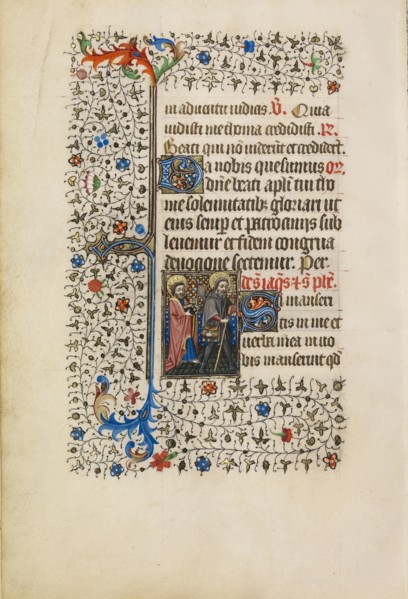 in adventu iudicis. V̄. Quia
vidisti me thoma credidisti. R̄.
Beati qui nō viderūt et crediderūt.
Da nobis quesumus or̄.
dn̄e beati apl̄i tui tho
me solennitatib; gloriari ut
eius semp̄ et patrocinijs sub
leuemur et fidem congrua
deuocione sectemur. Per.
De s̄ iaq̄s & s̄ ph̄e.
Si manseri
tis in me et
uerba mea in uo
bis manserint q̄d